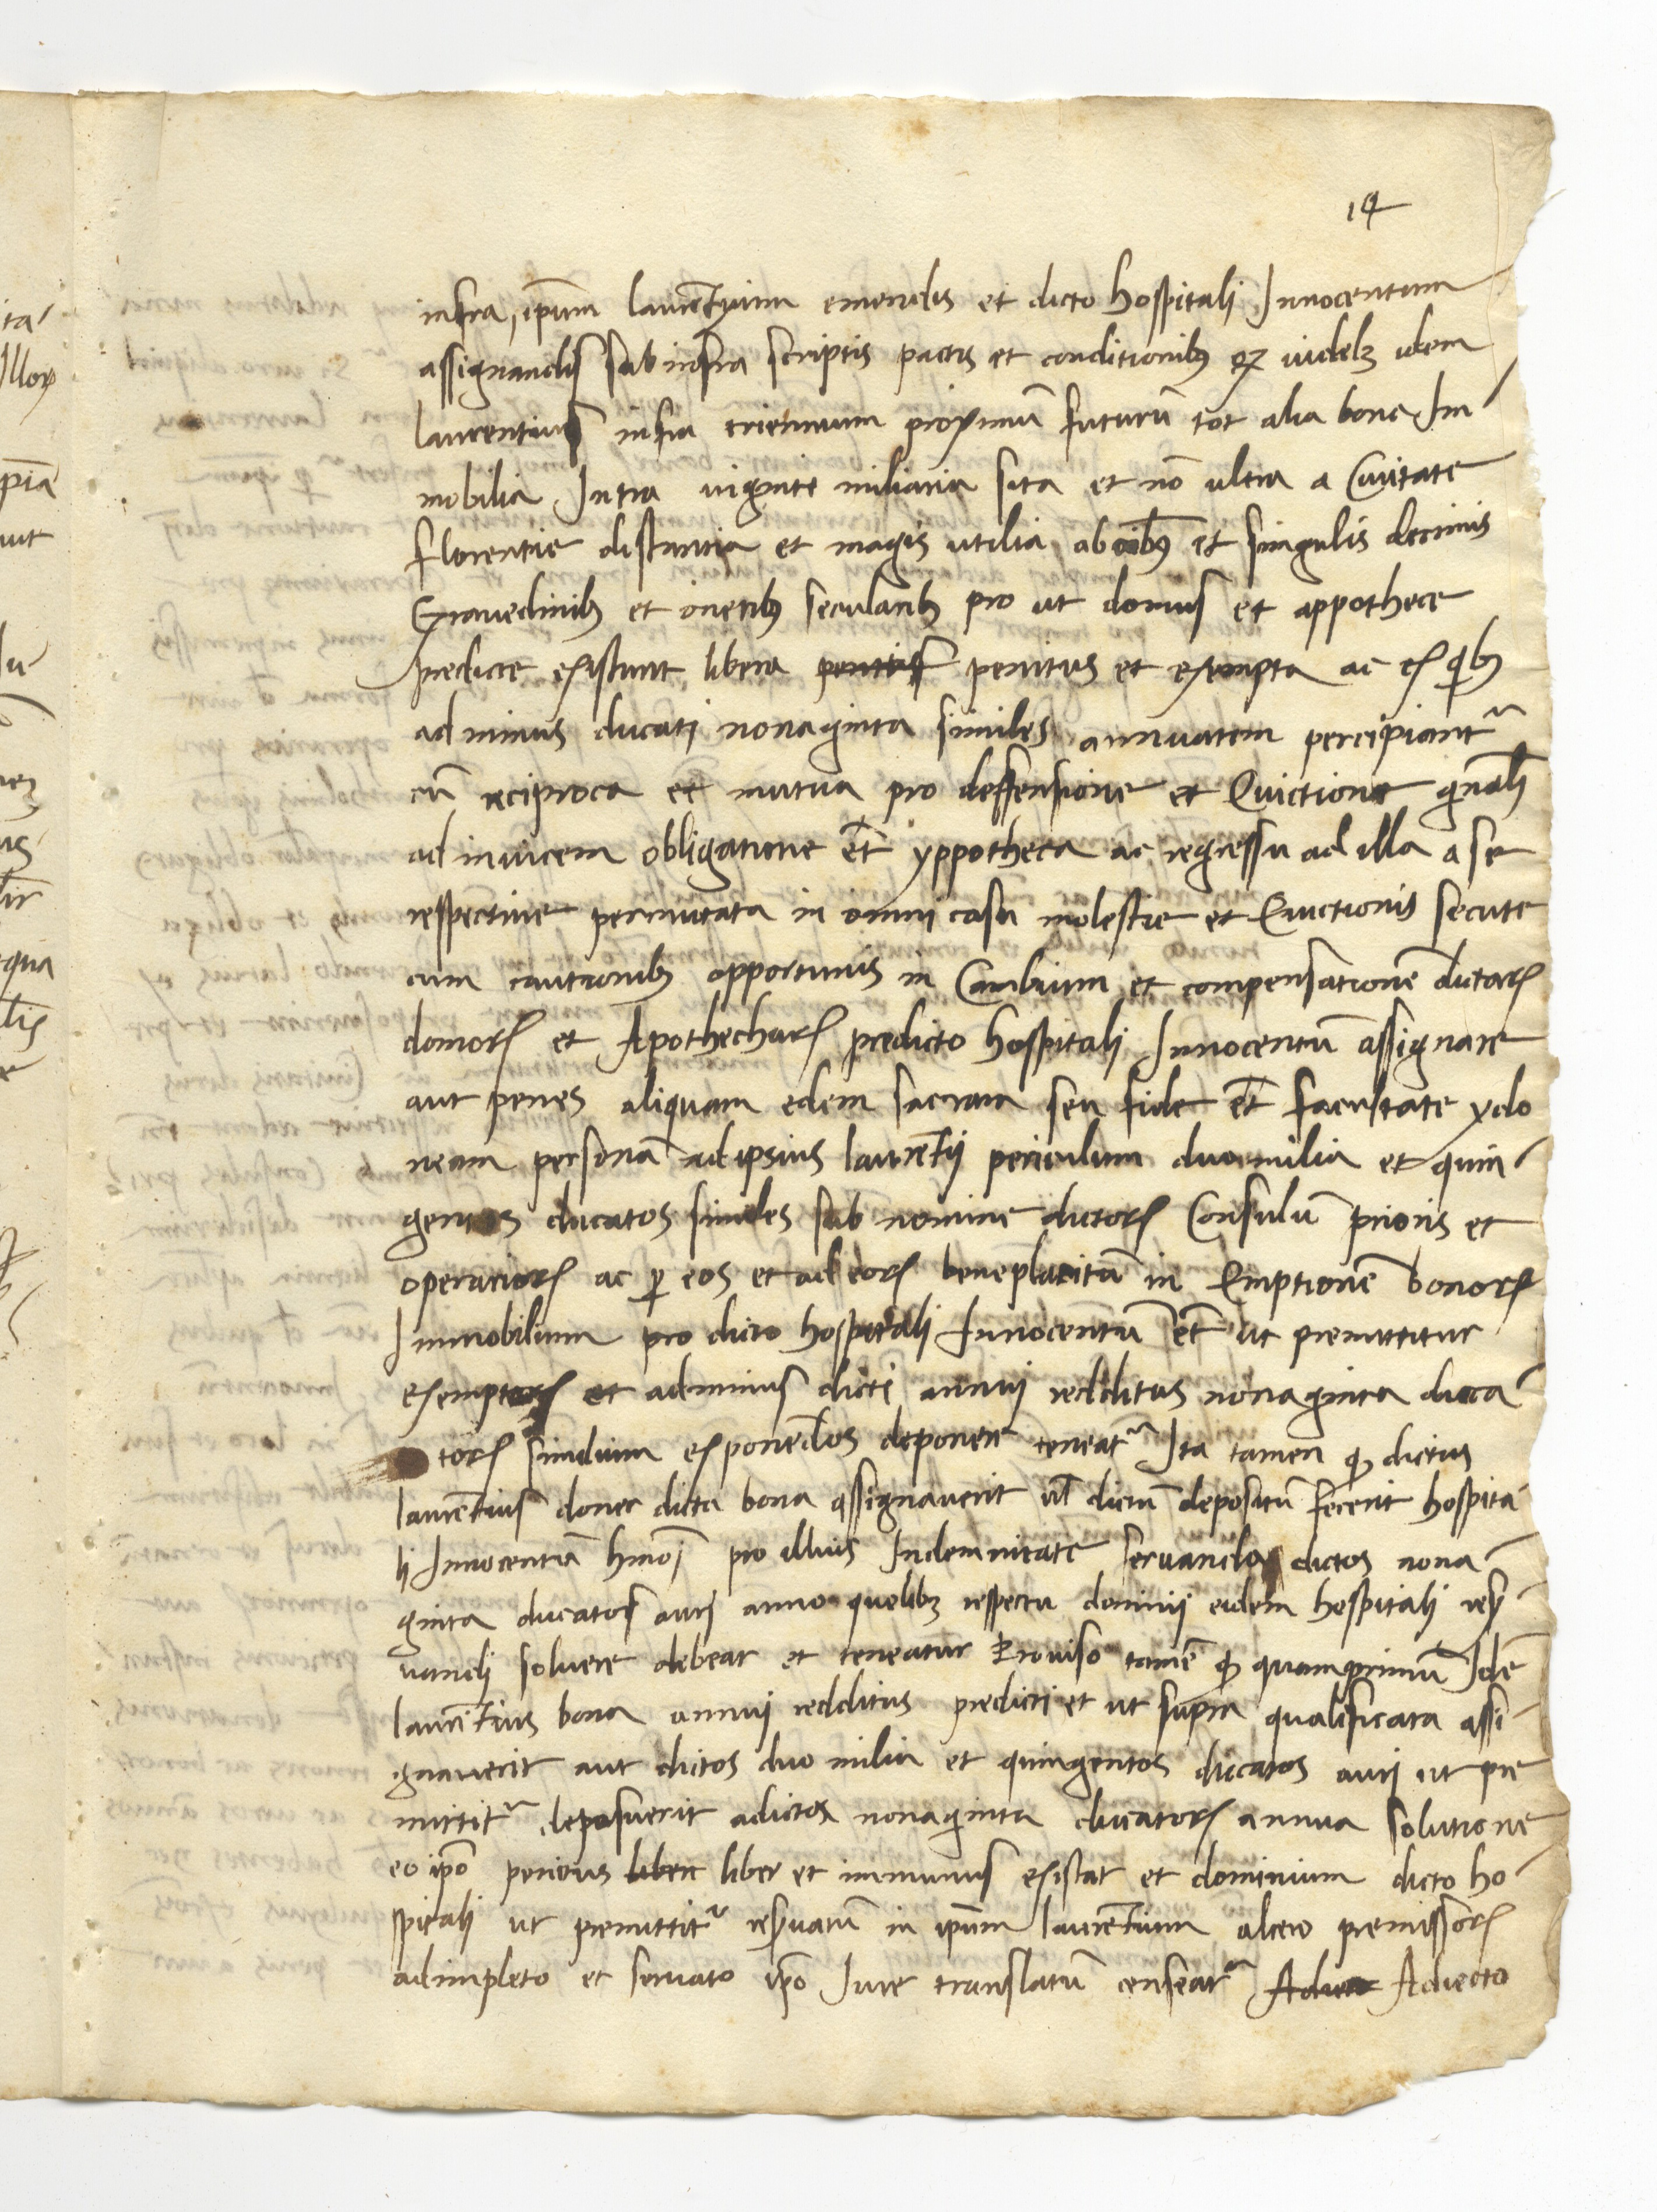 14
infra ip̄um laurētium emendis et dicto hospitali Innocentum
assignandis sub infra scriptis pactis et conditionibꝫ qꝫ uidelꝫ idem
laurentius infra triennium proximū futurū tot alia bona Im
mobilia Intra viginti miliaria sita et nō ultra a Ciuitate
florentie distantia et magis utilia ab oībꝫ et singulis decimis
Grauedinibꝫ et oneribꝫ secularibꝫ pro ut domus et appothece
predicte existunt libera penitus et exempta ac ex qibꝫ
ad minus ducati nonaginta similes annuatem percipiantʳ
cū reciproca et mutua pro deffensione et Euictione gn̄ali
ad inuicem obligatione et̄ yppotheca ac regressu ad illa a se
respectiue permutata in omni casu molestie et Euictionis secute
cum cautionibꝫ opportunis in Cambium et compensationē dictaꝝ
domoꝝ et Apothecharꝝ predicto hospitali Innocentū assignare
aut penes aliquam edem sacram seu fide et̄ facultate ydo
neam personā ad ipsius laurētij periculum duo milia et quin
gentos ducatos similes sub nomine dictoꝝ Consulū prioris et
operarioꝝ ac ꝑ eos et ad eoꝝ beneplacitū in Emptionē bonoꝝ
Immobilium pro dicto hospitali Innocentū et̄ ut premittitur
exemptoꝝ et adminus dicti annui redditus nonaginta duca
toꝝ similium exponēdos deponere teneatʳ Ita tamen ꝙ dictus
laurētius donec dicta bona assignauerit ul̄ dictū depositū fecerit hospita
li Innocentū hmōi pro illius Indemnitate seruanda dictos nona
ginta ducatos auri anno quolibꝫ respectu dominij eidem hospitali reser
uandi soluere debeat et teneatur Prouiso tamē ꝙ quamprimū Idē
laurētius bona annui redditus predicti et ut supra qualificata assi
gnauerit aut dictos duo milia et quingentos ducatos auri ut pre
mittitʳ deposuerit a dictoꝝ nonaginta ducatoꝝ annua solutione
eo ip̄o penitus liber et immunis existat et dominium dicto ho
spitali ut premittitʳ reseruatū in ip̄um laurētium altero premissoꝝ
adimpleto et seruato ip̄o Iure translatū censeatʳ Adiecto